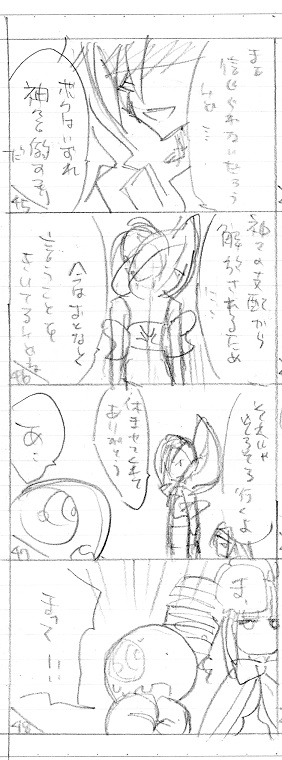 まぁ
信じられないだろう
けど……
ボクはいずれ
神々を倒すもの
だ
45
神々の支配から
解放されるため
……
今はおとなしく
言うことを
きいてるけどね
46
それじゃ
そろそろ行くよ
休ませてくれて
ありがとう
あ…
47
ま、
まって…!!
48